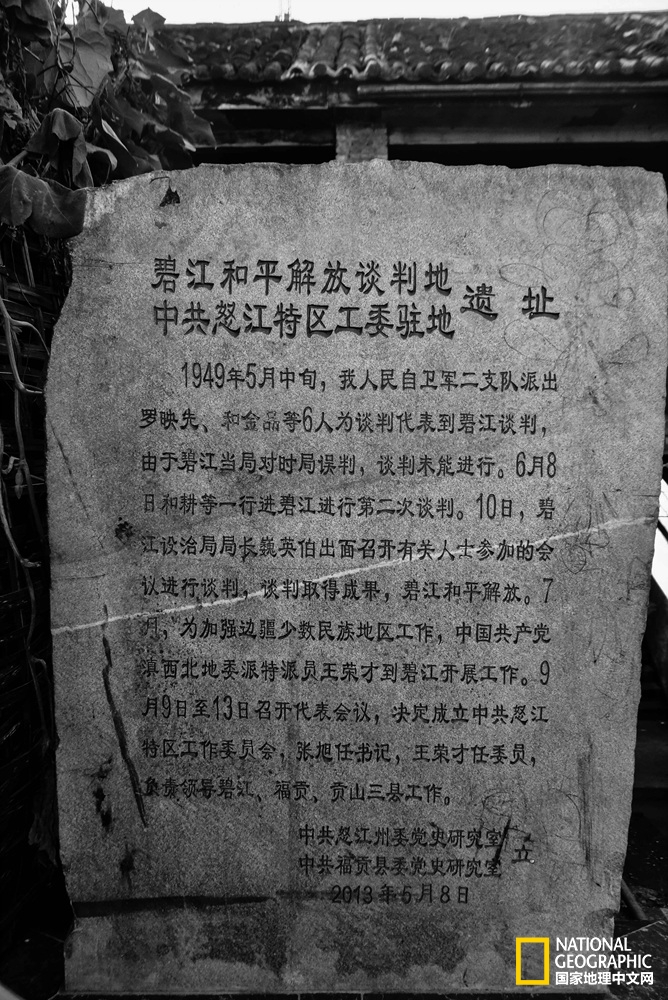 碧江和平解放谈判地
中共怒江特区工委驻地
遗址
1949年5月中旬，我人民自卫军二支队派出
罗映先、和金品等6人为谈判代表到碧江谈判，
由于碧江当局对时局误判，谈判未能进行。6月8
日和耕等一行进碧江进行第二次谈判。10日，碧
江设治局局长巍英伯出面召开有关人士参加的会
议进行谈判，谈判取得成果，碧江和平解放。7
月，为加强边疆少数民族地区工作，中国共产党
滇西北地委派特派员王荣才到碧江开展工作。9
月9日至13日召开代表会议，决定成立中共怒江
特区工作委员会，张旭任书记，王荣才任委员，
负责领导碧江、福贡、贡山三县工作。
中共怒江州委党史研究室
中共福贡县委党史研究室
立
2013年5月8日
NATIONAL
GEOGRAPHIC
国家地理中文网